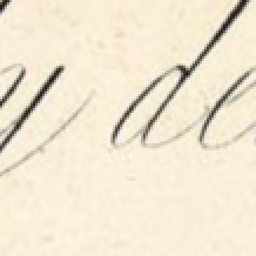 y de